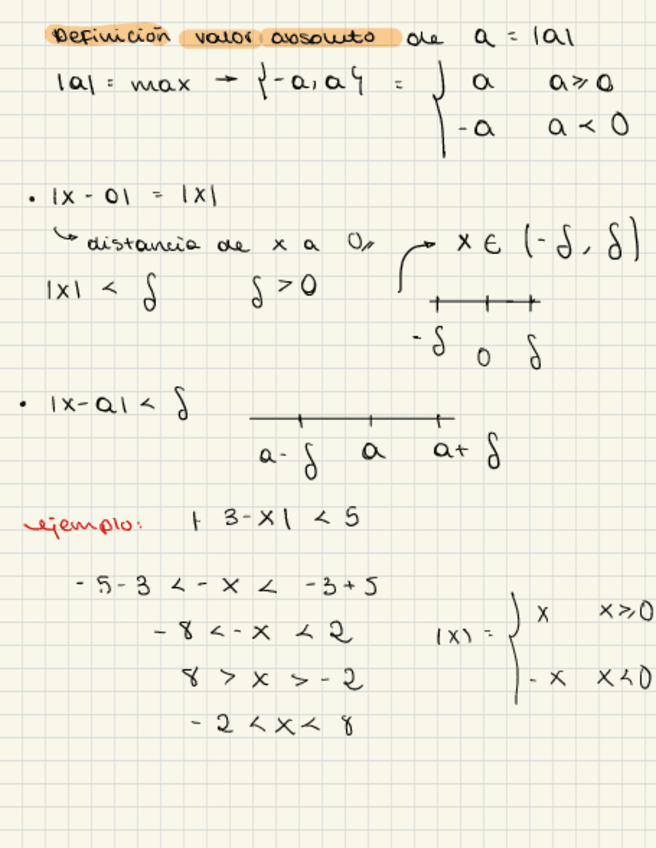 Definición valor absoluto de a = |a|
|a| = max → {-a, a} = { a a ≥ 0
-a a < 0
• |x - 0| = |x|
↳ distancia de x a 0,, → x ∈ (-δ, δ)
|x| < δ δ > 0
-δ 0 δ
• |x-a| < δ
a-δ a a+δ
ejemplo: | 3-x| < 5
-5-3 < -x < -3+5
-8 < -x < 2 |x) = { x x≥0
8 > x > -2 -x x<0
-2 < x < 8